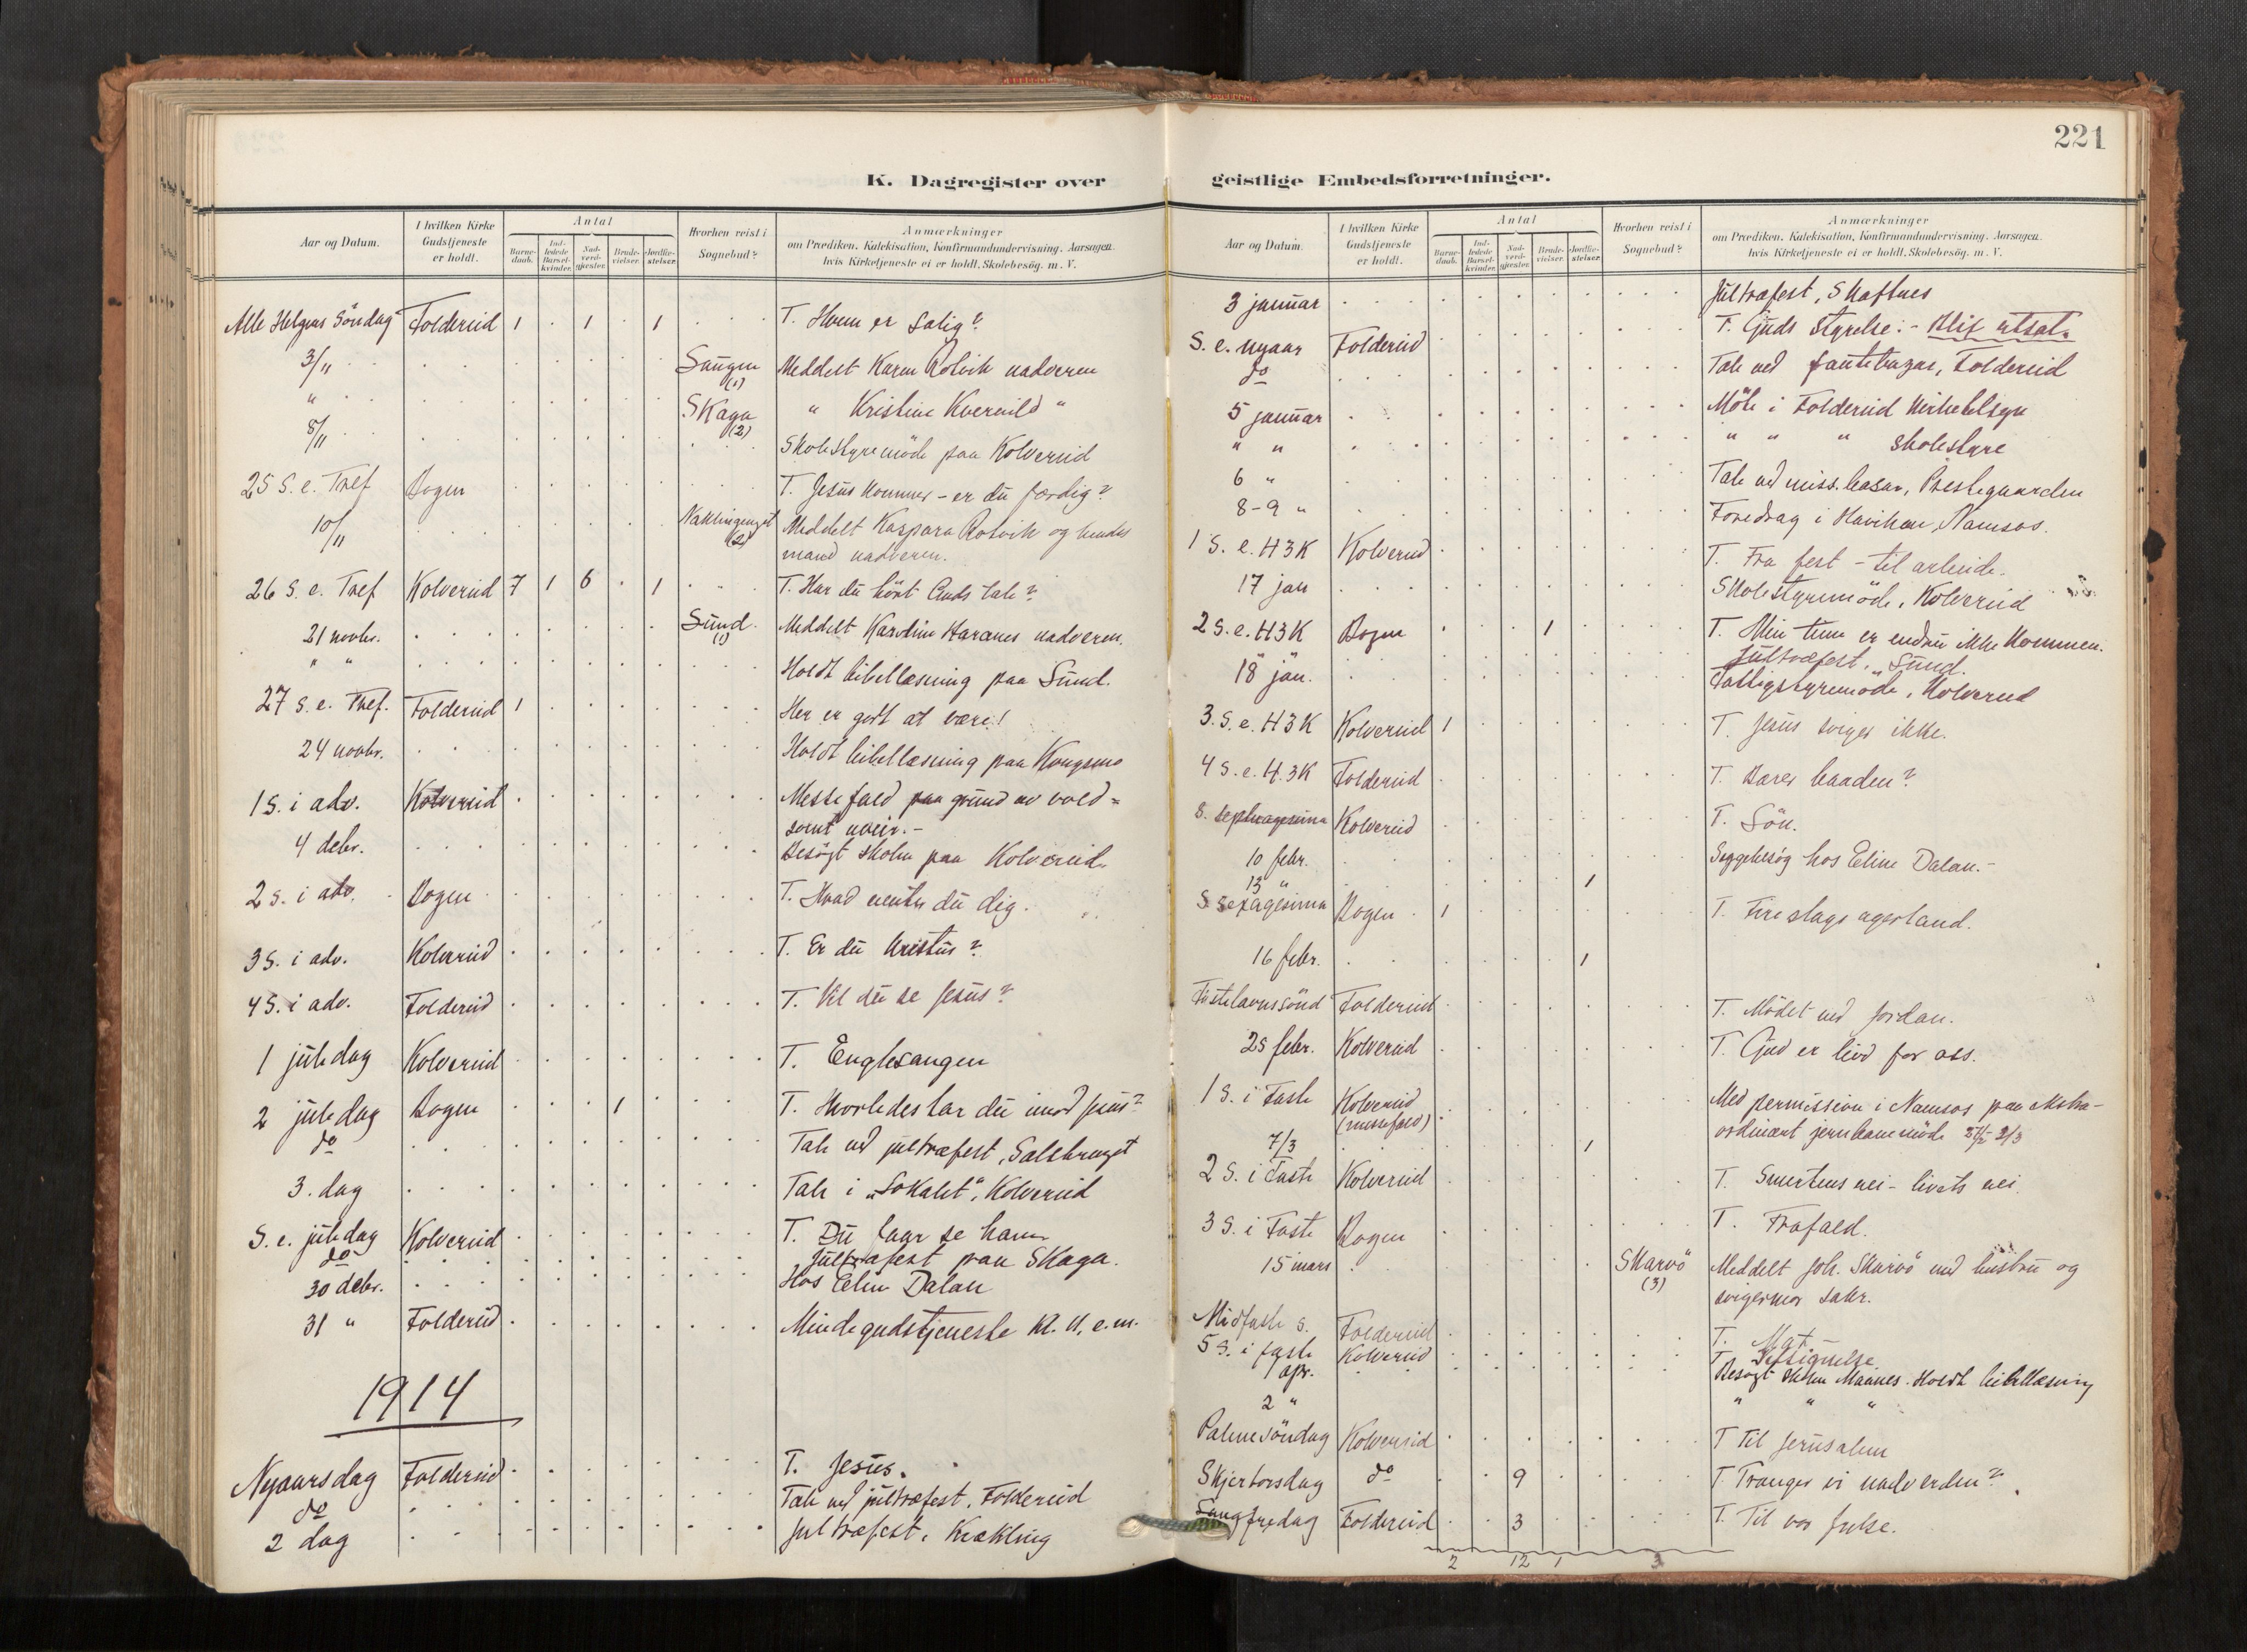 221
K. Dagregister over geistlige Embedsforretninger.
Aar og Datum.
I hvilken Kirke Gudstjeneste er holdt.
Antal
Barnedaab.
Indledede Barselkvinder.
Nadverdgjester.
Brudevielser.
Jordfæstelser.
Hvorhen reist i Sognebud?
Anmærkninger
om Prædiken, Katekisation, Konfirmandundervisning. Aarsagen.
hvis Kirketjeneste ei er holdt. Skolebesög. m. V.
Alle Helgens Söndag Foldereid 1 . 1 . 1 T. Hvem er Salig?
3/11 Saugen (1) Meddelt Karen Rotvik nadveren
" Skaga (2) " Kristine Kvernild "
8/11 Skolestyremöde paa Kolvereid
25 S. e. Tref Bogen T. Jesus kommer - er du færdig?
10/11 (2) Meddelt Kaspara Rotvik og hendes
mand nadveren.
26 S. e. Tref Kolvereid 7 1 6 . 1 T. Har du hört Guds tale?
21 novbr. Sund (1) Meddelt Karoline Haranes nadveren.
" " Holdt bibellæsning paa Sund.
27 S. e. Tref. Foldereid 1 Her er godt at være!
24 novbr. Holdt bibellæsning paa Kongsmo
1 S. i adv. Kolvereid Messefald paa grund av vold=
somt uveir.-
4 debr. Besögt skolen paa Kolvereid
2 S. i adv. Bogen T. Hvad venter du dig.
3 S. i adv. Kolvereid T. Er du Kristus?
4 S. i adv. Foldereid T. Vil du se Jesus?
1 juledag Kolvereid T. Englesangen
2 juledag Bogen 1 T. Hvorledes tar du imod Jesus?
do Tale ved jultræfest, Salsbruget
3. dag Tale i "Lokalet", Kolvereid
S. e. juledag Kolvereid T. Du faar se ham
do Jultræfest paa Skaga.
30 debr. Hos Eline Dalan
31 " Foldereid Mindegudstjeneste kl. 11, e.m.
1914
Nyaarsdag Foldereid T. Jesus.
do Tale ved jultræfest, Foldereid
2 dag Jultræfest, Krækling
Aar og Datum.
I hvilken Kirke Gudstjeneste er holdt.
Antal
Barnedaab.
Indledede Barselkvinder.
Nadverdgjester.
Brudevielser.
Jordfæstelser.
Hvorhen reist i Sognebud?
Anmærkninger
om Prædiken, Katekisation, Konfirmandundervisning. Aarsagen.
hvis Kirketjeneste ei er holdt. Skolebesög. m. V.
3 januar Jultræfest, Skaftnes
S. e. nyaar Foldereid T. Guds Styrelse: -
do Tale ved Foldereid
5 januar Möte i Foldereid
" " " " " skolestyre
6 " Tale ved miss.basar, Prestegaarden
8-9 " Foredrag i Namsos.
1 S. e. H3K Kolvereid T. Fra fest - til arbeide.
17 jan Skolestyremöde, Kolvereid
2 S. e. H3K Bogen 1 T. Min time er endnu ikke kommen.
" " Jultræfest, Sund.
18 jan. Fattigstyremöde, Kolvereid
3. S. e. H3K Kolvereid 1 T. Jesus sviger ikke.
4 S. e. H.3K Foldereid T. Bærer baaden?
S. septuagesima Kolvereid T. Lön.
10 febr. Sygebesög hos Eline Dalan.-
13 " 1
S. sexagesima Bogen 1 T. Fire slags agerland.
16 febr. 1
Fastelavnssönd Foldereid T. Mödet ved Jordan.
25 febr. Kolvereid T. Gud er livd for oss.
1 S. i Faste Kolvereid Med permission i Namsos paa ekstra-
(messefald) ordinært jernbanemöde
7/3 1
2 S. i Faste Kolvereid T. Smertens vei - livets vei.
3 S. i Faste Bogen T. Frafald.
15 mars Skarvö (3) Meddelt Joh. Skarvö med hustru og
svigermor sakr.
Midfaste S. Foldereid T. Mat
5 S. i faste Kolvereid T. Velsignelse
1 apr. Besögt skolen Maanes. Holdt bibellæsning
2 " " " "
Palmesöndag Kolvereid T Til Jerusalem
Skjertorsdag do 9 T. Trænger vi nadverden?
Langfredag Foldereid 3 T. Til vor frelse.
2 12 1 3